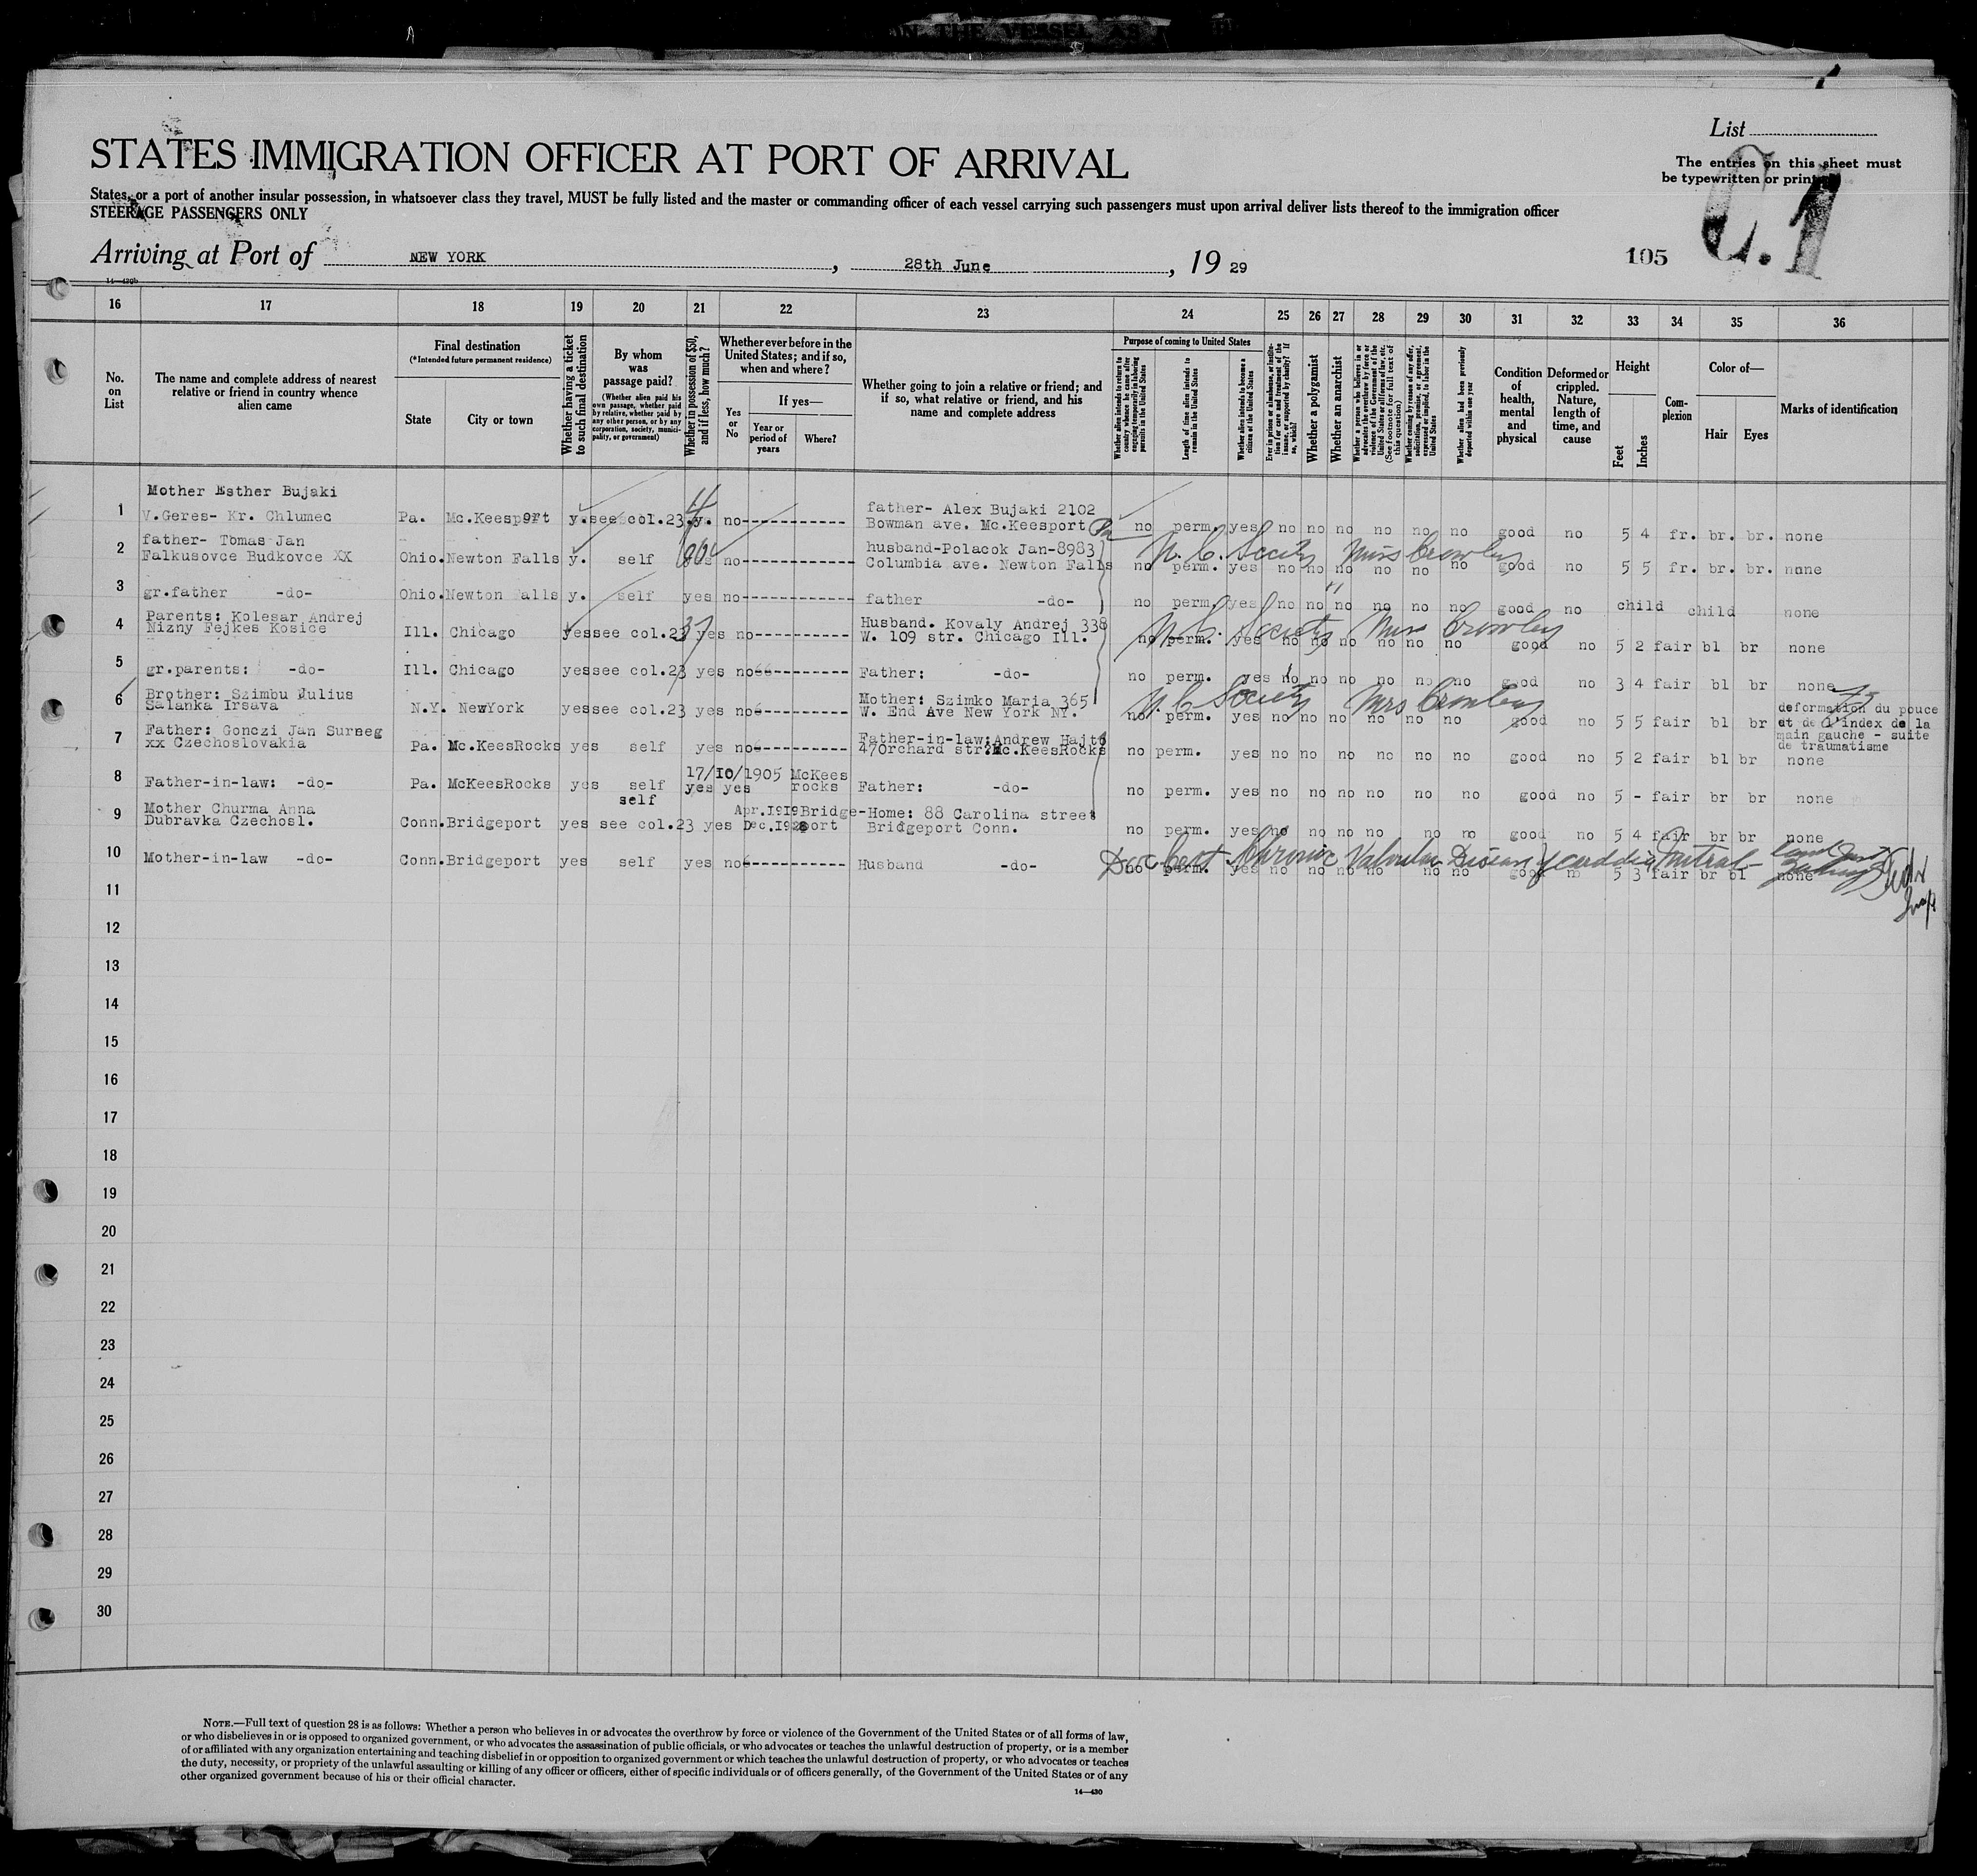 List
The entries on this sheet must
be typewritten or printed
STATES IMMIGRATION OFFICER AT PORT OF ARRIVAL
States, or a port of another insular possession, in whatsoever class they travel, MUST be fully listed and the master or commanding officer of each vessel carrying such passengers must upon arrival deliver lists thereof to the immigration officer
STEERAGE PASSENGERS ONLY
C.1
Arriving at Port of NEW YORK, 28th June, 19 29
105
16 17 18 19 20 21 22 23 24 25 26 27 28 29 30 31 32 33 34 35 36
No. on List
The name and complete address of nearest relative or friend in country whence alien came
Final destination
(*Intended future permanent residence)
State
City or town
Whether having a ticket to such final destination
By whom was passage paid?
(Whether alien paid his own passage, whether paid by relative, whether paid by any other person, or by any corporation, society, municipality, or government)
Whether in possession of $50, and if less, how much?
Whether ever before in the United States; and if so, when and where?
Yes or No
If yes—
Year or period of years
Where?
Whether going to join a relative or friend; and if so, what relative or friend, and his name and complete address
Purpose of coming to United States
Whether alien intends to return to country whence he came after engaging temporarily in laboring pursuits in the United States
Length of time alien intends to remain in the United States
Whether alien intends to become a citizen of the United States
Ever in prison or almshouse, or institution for care and treatment of the insane, or supported by charity? If so, which?
Whether a polygamist
Whether an anarchist
Whether a person who believes in or advocates the overthrow by force or violence of the Government of the United States or all forms of law, etc. (See footnote for full text of this question)
Whether coming by reason of any offer, solicitation, promise, or agreement, expressed or implied, to labor in the United States
Whether alien had been previously deported within one year
Condition of health, mental and physical
Deformed or crippled. Nature, length of time, and cause
Height
Feet
Inches
Complexion
Color of—
Hair
Eyes
Marks of identification
Mother Esther Bujaki father- Alex Bujaki 2102
1 V.Geres- Kr. Chlumec Pa. Mc.Keesport y. see col.23 y. no----------- Bowman ave. Mc.Keesport Pa no perm. yes no no no no no no good no 5 4 fr. br. br. none
father- Tomas Jan husband-Polacok Jan-8983 N. C. Society Miss Crowley
2 Falkusovce Budkovce XX Ohio. Newton Falls y. self no----------- Columbia ave. Newton Falls no perm. yes no no no no no no good no 5 5 fr. br. br. none
3 gr.father -do- Ohio. Newton Falls y. self yes no----------- father -do- no perm. yes no no no no no no good no child child none
Parents: Kolesar Andrej Husband. Kovaly Andrej 338 N. C. Society Miss Crowley
4 Nizny Fejkes Kosice Ill. Chicago yes see col.23 yes no----------- W. 109 str. Chicago Ill. no perm. yes no no no no no no good no 5 2 fair bl br none
5 gr.parents: -do- Ill. Chicago yes see col.23 yes no----------- Father: -do- no perm. yes no no no no no no good no 3 4 fair bl br none
Brother: Szimbu Julius Mother: Szimko Maria 365 N C Society Mrs Crowley deformation du pouce
6 Salanka Irsava N.Y. NewYork yes see col.23 yes no----------- W. End Ave New York NY. no perm. yes no no no no no no good no 5 5 fair bl br et de l'index de la
main gauche - suite
de traumatisme
Father: Gonczi Jan Surneg Father-in-law:Andrew Hajto
7 xx Czechoslovakia Pa. Mc.KeesRocks yes self yes no----------- 47Orchard str. Mc.KeesRocks no perm. yes no no no no no no good no 5 2 fair bl br none
17/10/1905 McKees
8 Father-in-law: -do- Pa. McKeesRocks yes self yes yes rocks Father: -do- no perm. yes no no no no no no good no 5 - fair br br none
Mother Churma Anna self Apr.1919 Bridge- Home: 88 Carolina street
9 Dubravka Czechosl. Conn. Bridgeport yes see col.23 yes Dec.1928 port Bridgeport Conn. no perm. yes no no no no no no good no 5 4 fair br br none
Doc Cert Chronic Valvular Disease Cardiac Mitral
10 Mother-in-law -do- Conn. Bridgeport yes self yes no----------- Husband -do- no perm. yes no no no no no no good no 5 3 fair br bl none
11
12
13
14
15
16
17
18
19
20
21
22
23
24
25
26
27
28
29
30
NOTE.—Full text of question 28 is as follows: Whether a person who believes in or advocates the overthrow by force or violence of the Government of the United States or of all forms of law,
or who disbelieves in or is opposed to organized government, or who advocates the assassination of public officials, or who advocates or teaches the unlawful destruction of property, or is a member
of or affiliated with any organization entertaining and teaching disbelief in or opposition to organized government or which teaches the unlawful destruction of property, or who advocates or teaches
the duty, necessity, or propriety of the unlawful assaulting or killing of any officer or officers, either of specific individuals or of officers generally, of the Government of the United States or of any
other organized government because of his or their official character.
14—430